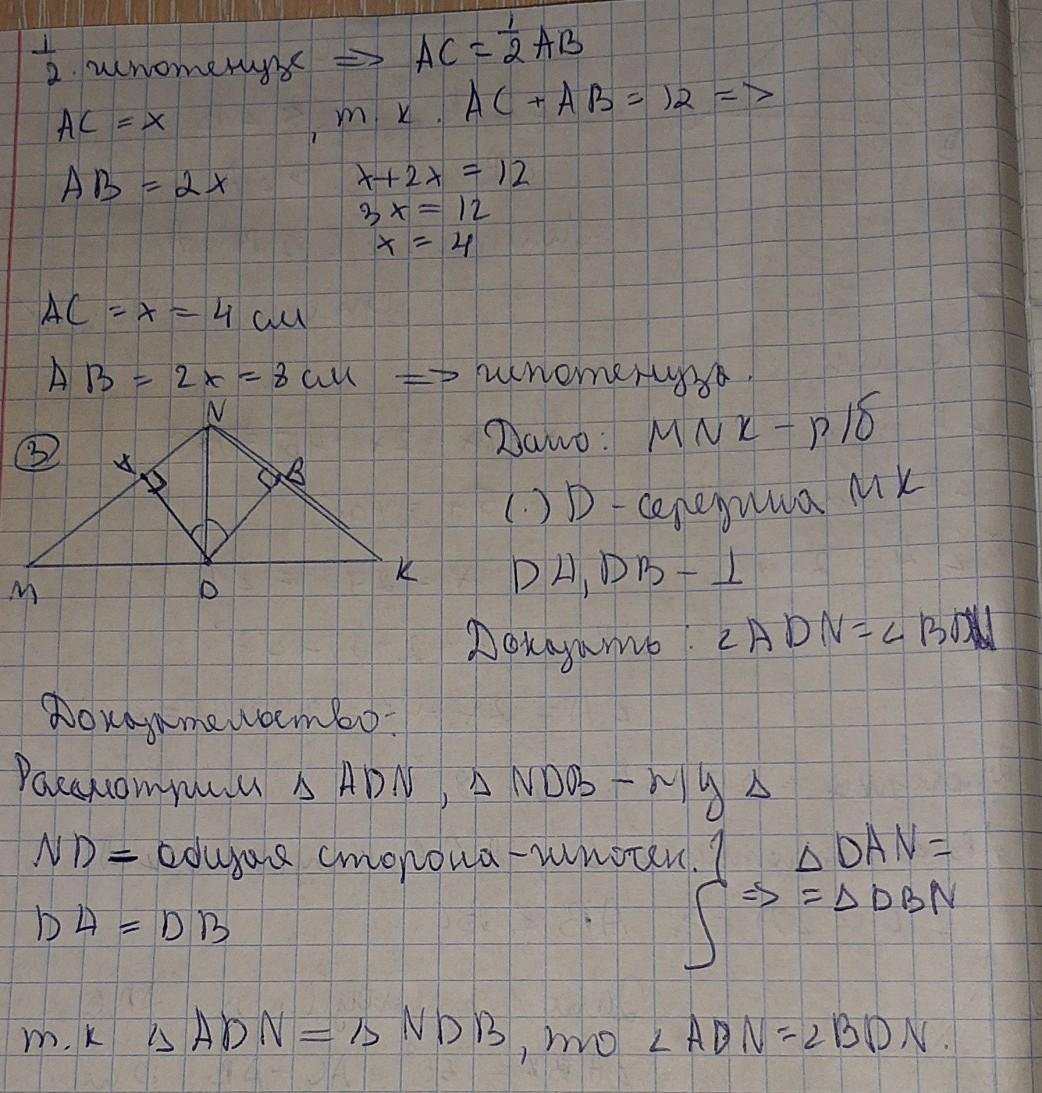 1/2 гипотенузе => AC = 1/2 AB
AC = x , т.к. AC + AB = 12 =>
AB = 2x x+2x = 12
3x = 12
x = 4
AC = x = 4 см
AB = 2x = 8 см => гипотенуза.
③ N Дано: MNK – р/б
A B (·) D – середина MK
M D K DA, DB – ⊥
Доказать: ∠ADN = ∠BDN
Доказательство:
Рассмотрим Δ ADN, Δ NDB – п/у Δ
ND = общая сторона – гипотен. } Δ DAN =
DA = DB => = Δ DBN
т.к Δ ADN = Δ NDB, то ∠ADN = ∠BDN.